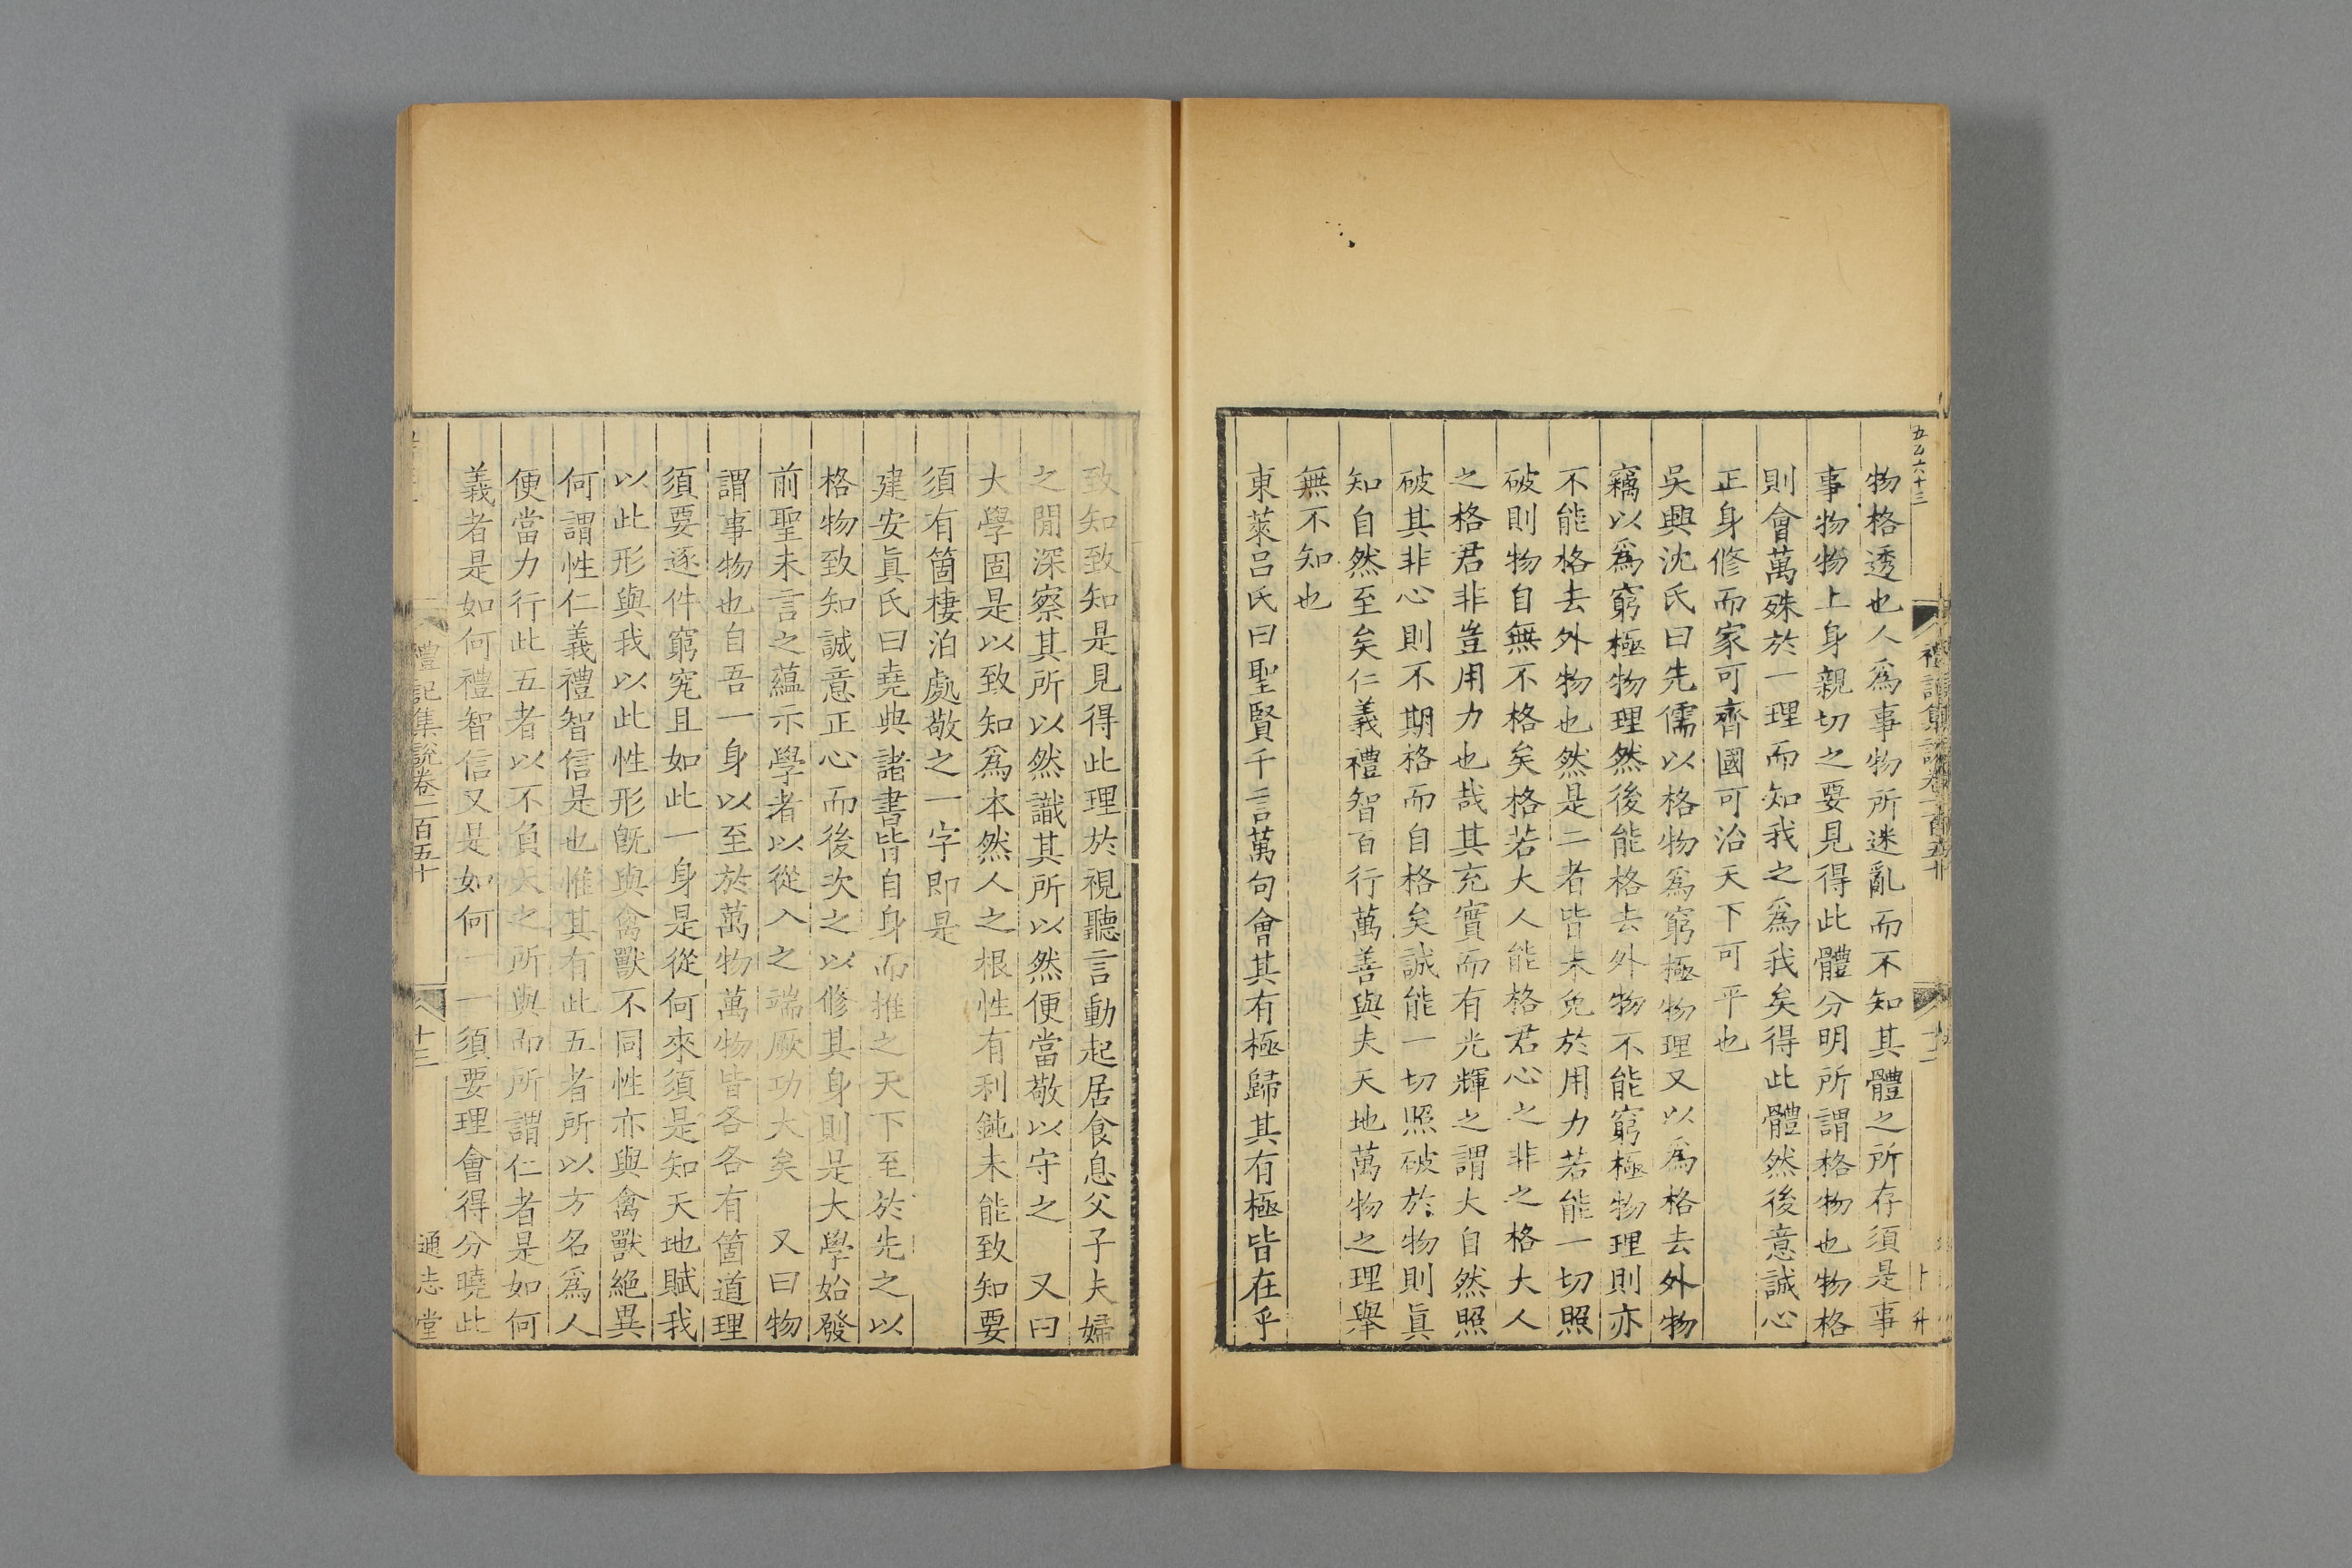 物格透也人爲事物所迷亂而不知其體之所存須是事
事物物上身親切之要見得此體分明所謂格物也物格
則會萬殊於一理而知我之爲我矣得此體然後意誠心
正身修而家可齊國可治天下可平也
吳興沈氏曰先儒以格物爲窮極物理又以爲格去外物
竊以爲窮極物理然後能格去外物不能窮極物理則亦
不能格去外物也然是二者皆未免於用力若能一切照
破則物自無不格矣格若大人能格君心之非之格大人
之格君非豈用力也哉其充實而有光輝之謂大自然照
破其非心則不期格而自格矣誠能一切照破於物則眞
知自然至矣仁義禮智百行萬善與夫天地萬物之理舉
無不知也
東萊呂氏曰聖賢千言萬句會其有極歸其有極皆在乎
致知致知是見得此理於視聽言動起居食息父子夫婦
之閒深察其所以然識其所以然便當敬以守之　又曰
大學固是以致知爲本然人之根性有利鈍未能致知要
須有箇棲泊處敬之一字即是
建安眞氏曰堯典諸書皆自身而推之天下至於先之以
格物致知誠意正心而後次之以修其身則是大學始發
前聖未言之蘊示學者以從入之端厥功大矣　又曰物
謂事物也自吾一身以至於萬物萬物皆各各有箇道理
須要逐件窮究且如此一身是從何來須是知天地賦我
以此形與我以此性形旣與禽獸不同性亦與禽獸絕異
何謂性仁義禮智信是也惟其有此五者所以方名爲人
便當力行此五者以不負天之所與而所謂仁者是如何
義者是如何禮智信又是如何一一須要理會得分曉此
禮記集說卷一百五十
十三
通志堂